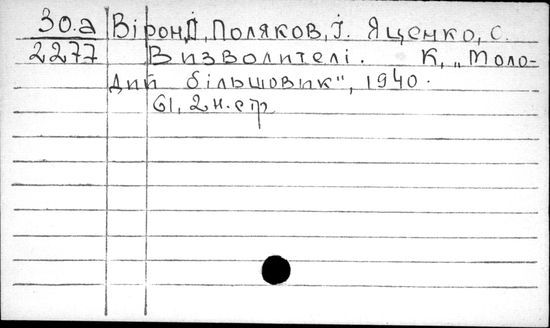 30.а Вірон,Д, Поляков, І. Яценко, С.
2277 Визволителі. К, „Моло-
дий більшовик", 1940.
61, 2н.стр